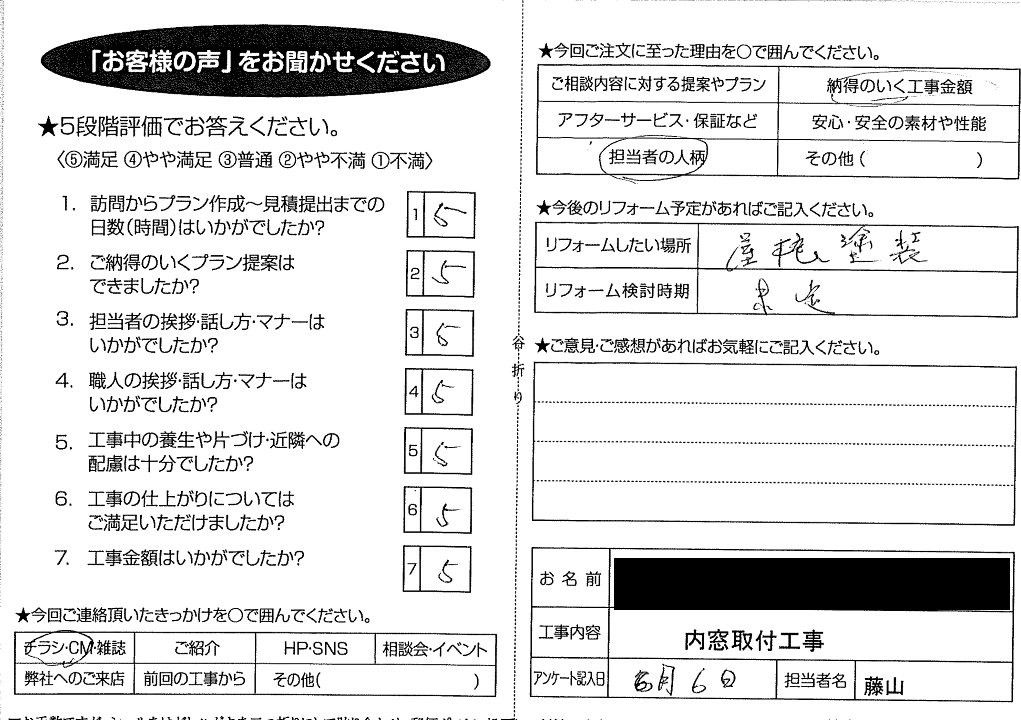 「お客様の声」をお聞かせください
★5段階評価でお答えください。
〈⑤満足 ④やや満足 ③普通 ②やや不満 ①不満〉
1. 訪問からプラン作成～見積提出までの
日数(時間)はいかがでしたか?
1 5
2. ご納得のいくプラン提案は
できましたか?
2 5
3. 担当者の挨拶・話し方・マナーは
いかがでしたか?
3 5
4. 職人の挨拶・話し方・マナーは
いかがでしたか?
4 5
5. 工事中の養生や片づけ・近隣への
配慮は十分でしたか?
5 5
6. 工事の仕上がりについては
ご満足いただけましたか?
6 5
7. 工事金額はいかがでしたか?
7 5
★今回ご連絡頂いたきっかけを○で囲んでください。
チラシ・CM・雑誌 ご紹介 HP・SNS 相談会・イベント
弊社へのご来店 前回の工事から その他( )
谷折り
★今回ご注文に至った理由を○で囲んでください。
ご相談内容に対する提案やプラン 納得のいく工事金額
アフターサービス・保証など 安心・安全の素材や性能
担当者の人柄 その他( )
★今後のリフォーム予定があればご記入ください。
リフォームしたい場所 屋根塗装
リフォーム検討時期 未定
★ご意見・ご感想があればお気軽にご記入ください。
お名前
工事内容 内窓取付工事
アンケート記入日 月6日 担当者名 藤山